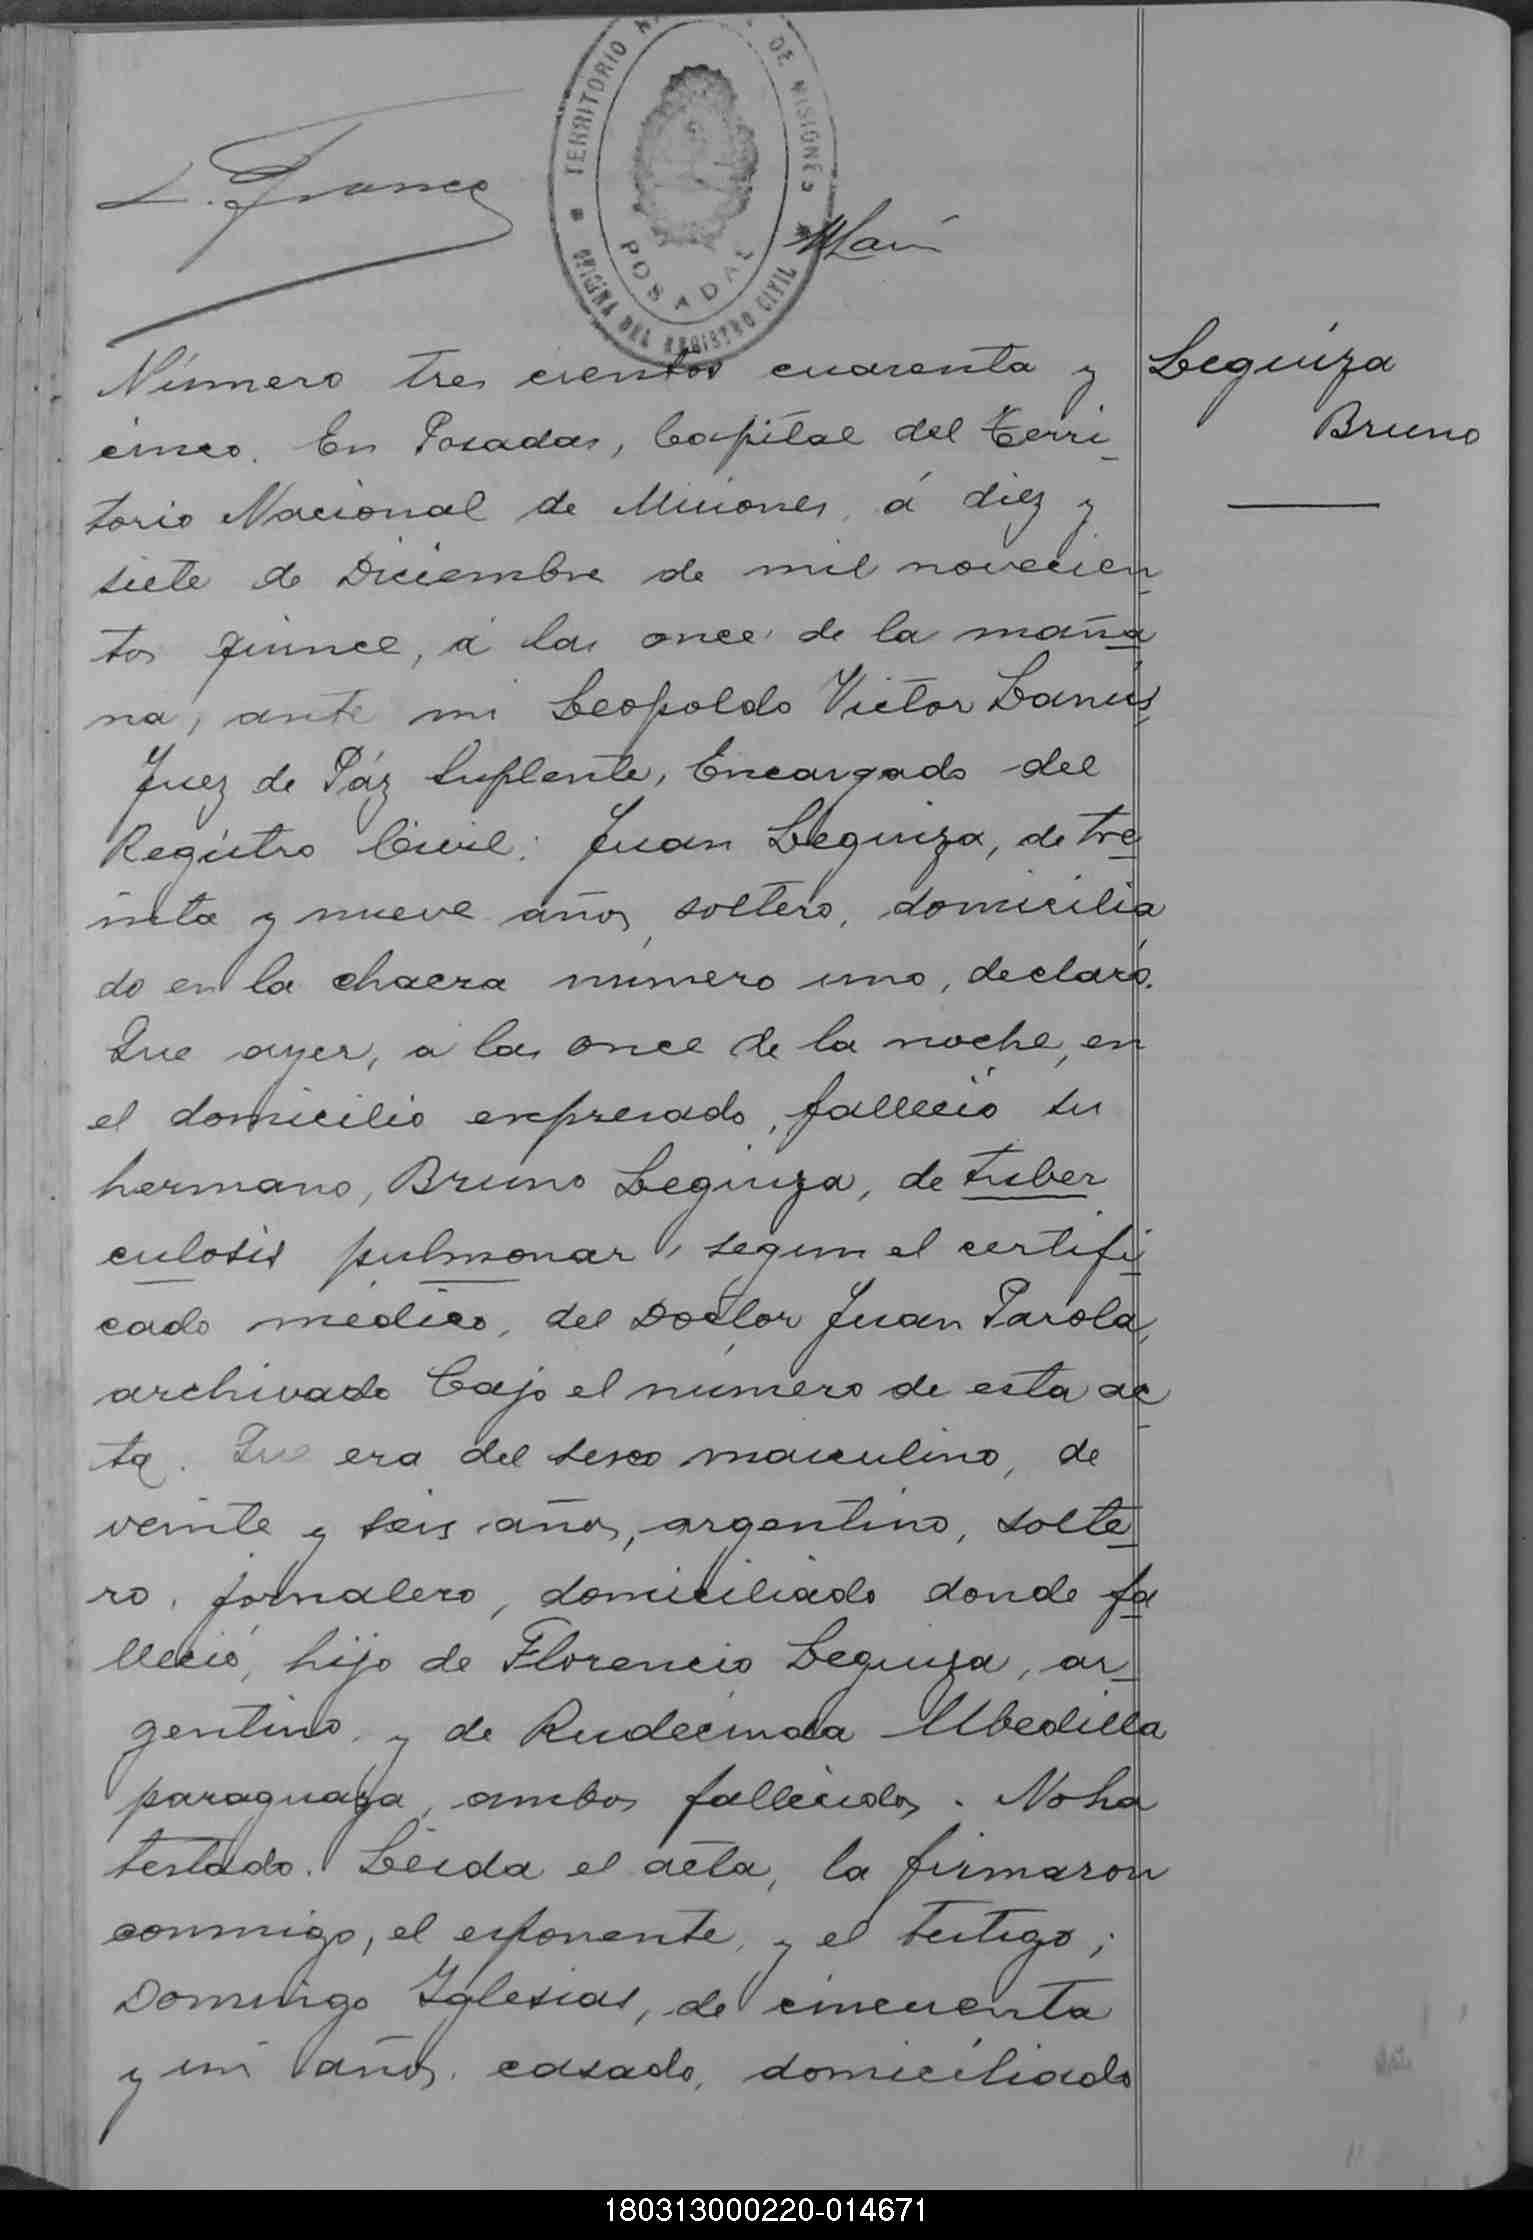 TERRITORIO DE MISIONES
POSADAS
OFICINA DEL REGISTRO CIVIL
L. Franco
Leguiza
Bruno
Número tres cientos cuarenta y
cinco. En Posadas, Capital del Terri-
torio Nacional de Misiones, á diez y
siete de Diciembre de mil novecien-
tos quince, á las once de la maña-
na, ante mi Leopoldo Victor Lanús,
Juez de Páz Suplente, Encargado del
Registro Civil: Juan Leguiza, de tre-
inta y nueve años, soltero, domicilia
do en la chacra número uno, declaró.
Que ayer, a las once de la noche, en
el domicilio expresado, falleció su
hermano, Bruno Leguiza, de tuber
culosis pulmonar, segun el certifi-
cado médico, del Doctor Juan Parola,
archivado bajo el número de esta ac-
ta. Que era del sexo masculino, de
veinte y seis años, argentino, solte-
ro, jornalero, domiciliado donde fa-
lleció, hijo de Florencio Leguiza, ar-
gentino, y de Rudecinda Ubedilla
paraguaya, ambos fallecidos. No ha
testado. Leida el acta, la firmaron
conmigo, el esponente, y el testigo;
Domingo Iglesias, de cincuenta
y un años, casado, domiciliado
180313000220-014671